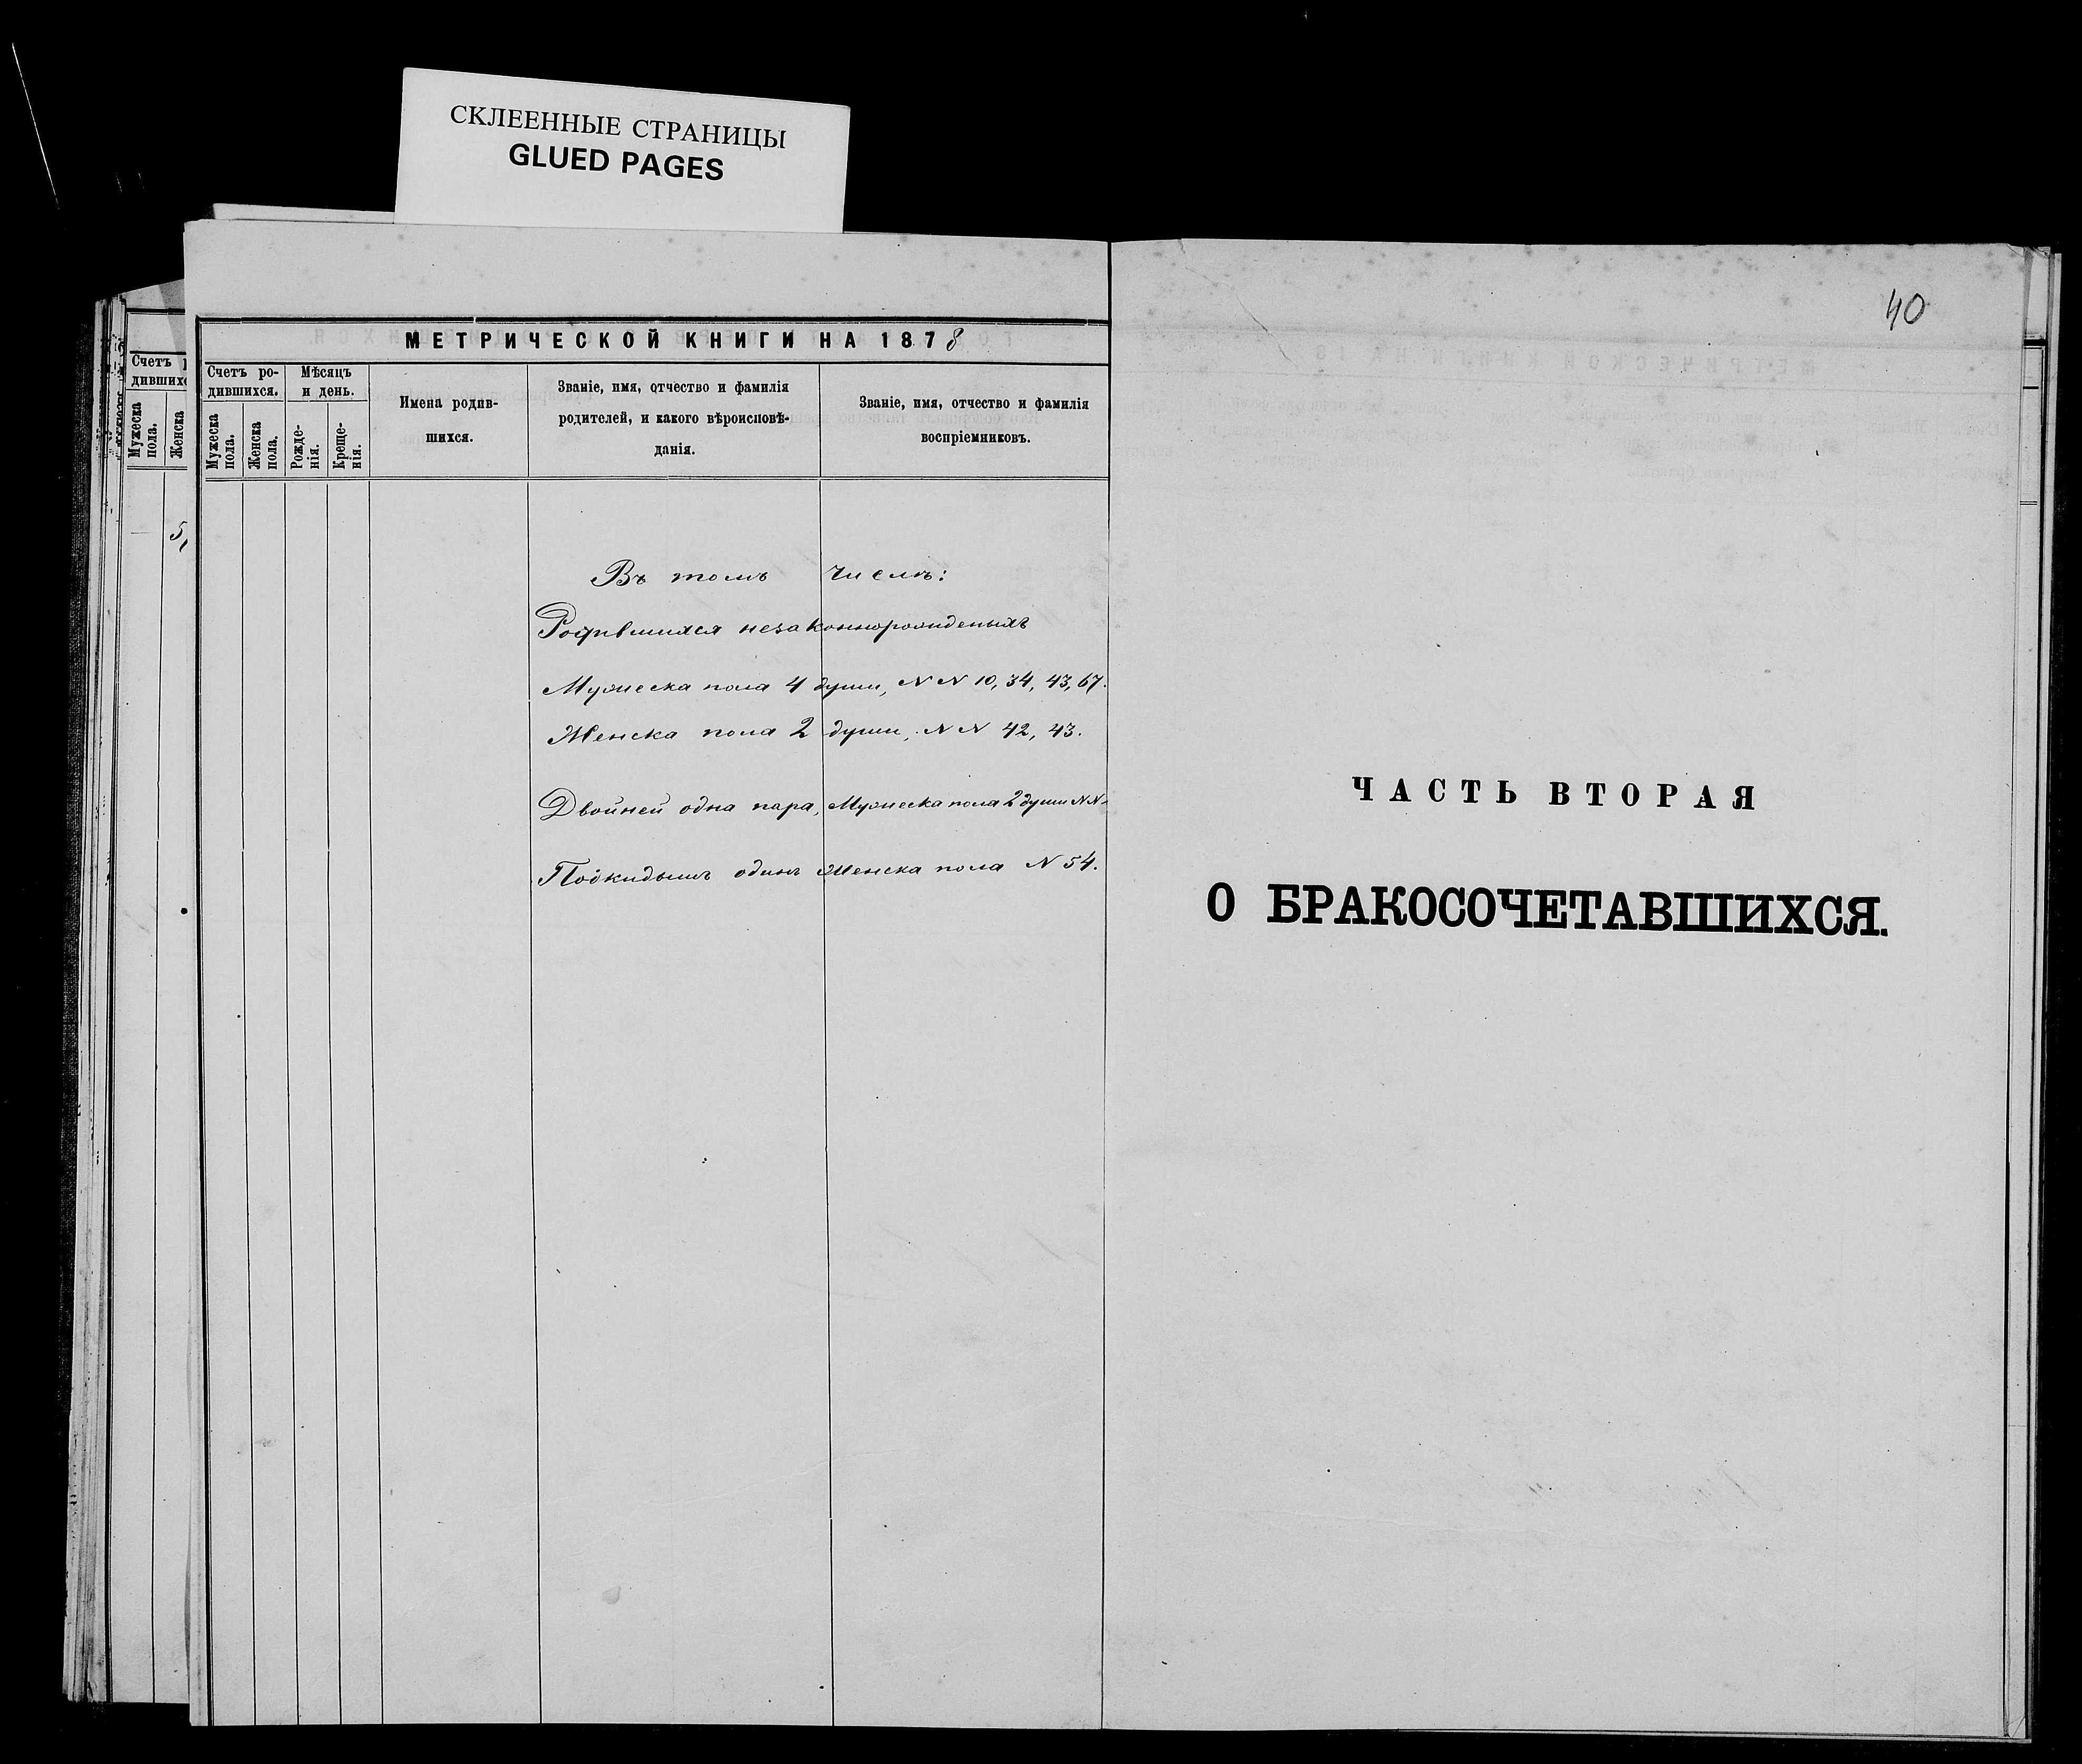 СКЛЕЕННЫЕ СТРАНИЦЫ
GLUED PAGES
Счетъ
дившихс
Мужеска
пола.
Женска
5
МЕТРИЧЕСКОЙ КНИГИ НА 1878
Счетъ ро-
дившихся.
Мѣсяцъ
и день.
Мужеска
пола.
Женска
пола.
Рожде-
нія.
Креще-
нія.
Имена родив-
шихся.
Званіе, имя, отчество и фамилія
родителей, и какого вѣроисповѣ-
данія.
Званіе, имя, отчество и фамилія
воспріемниковъ.
Въ томъ числѣ:
Родившихся незаконнорожденыхъ
Мужеска пола 4 души, N N 10, 34, 43, 67.
Женска пола 2 души, N N 42, 43.
Двойней одна пара, Мужеска пола 2 души N N
Подкидышъ одинъ женска пола N 54.
40
ЧАСТЬ ВТОРАЯ
О БРАКОСОЧЕТАВШИХСЯ.